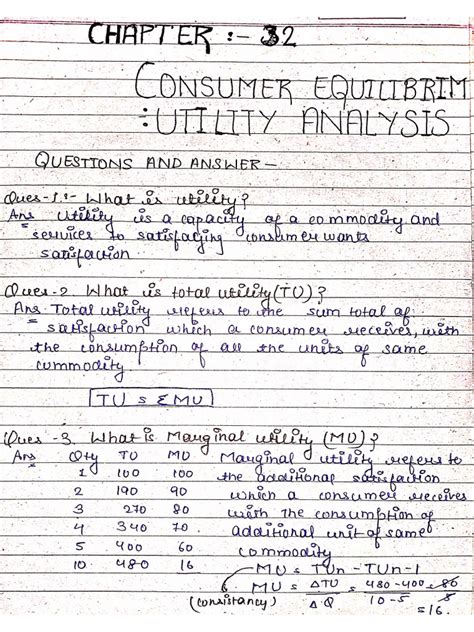 CHAPTER :- 32
CONSUMER EQUILIBRIM
:UTILITY ANALYSIS
QUESTIONS AND ANSWER -
Ques-1:- What is utility?
Ans Utility is a capacity of a commodity and
services to satisfacying consumer wants
satisfaction
Ques-2 What is total utility(TU)?
Ans. Total utility refers to the sum total of
satisfaction which a consumer receives, with
the consumption of all the units of same
commodity
TU = ΣMU
Ques -3. What is Marginal utility (MU)?
Ans Qty TU MU Marginal utility refers to
1 100 100 the additional satisfaction
2 190 90 which a consumer receives
3 270 80 with the consumption of
4 340 70. additional unit of same
5 400 60 commodity
10 480 16 MU = TUn - TUn-1
MU = ΔTU = 480-400 = 80
(consistancy) ΔQ 10-5 5
=16.